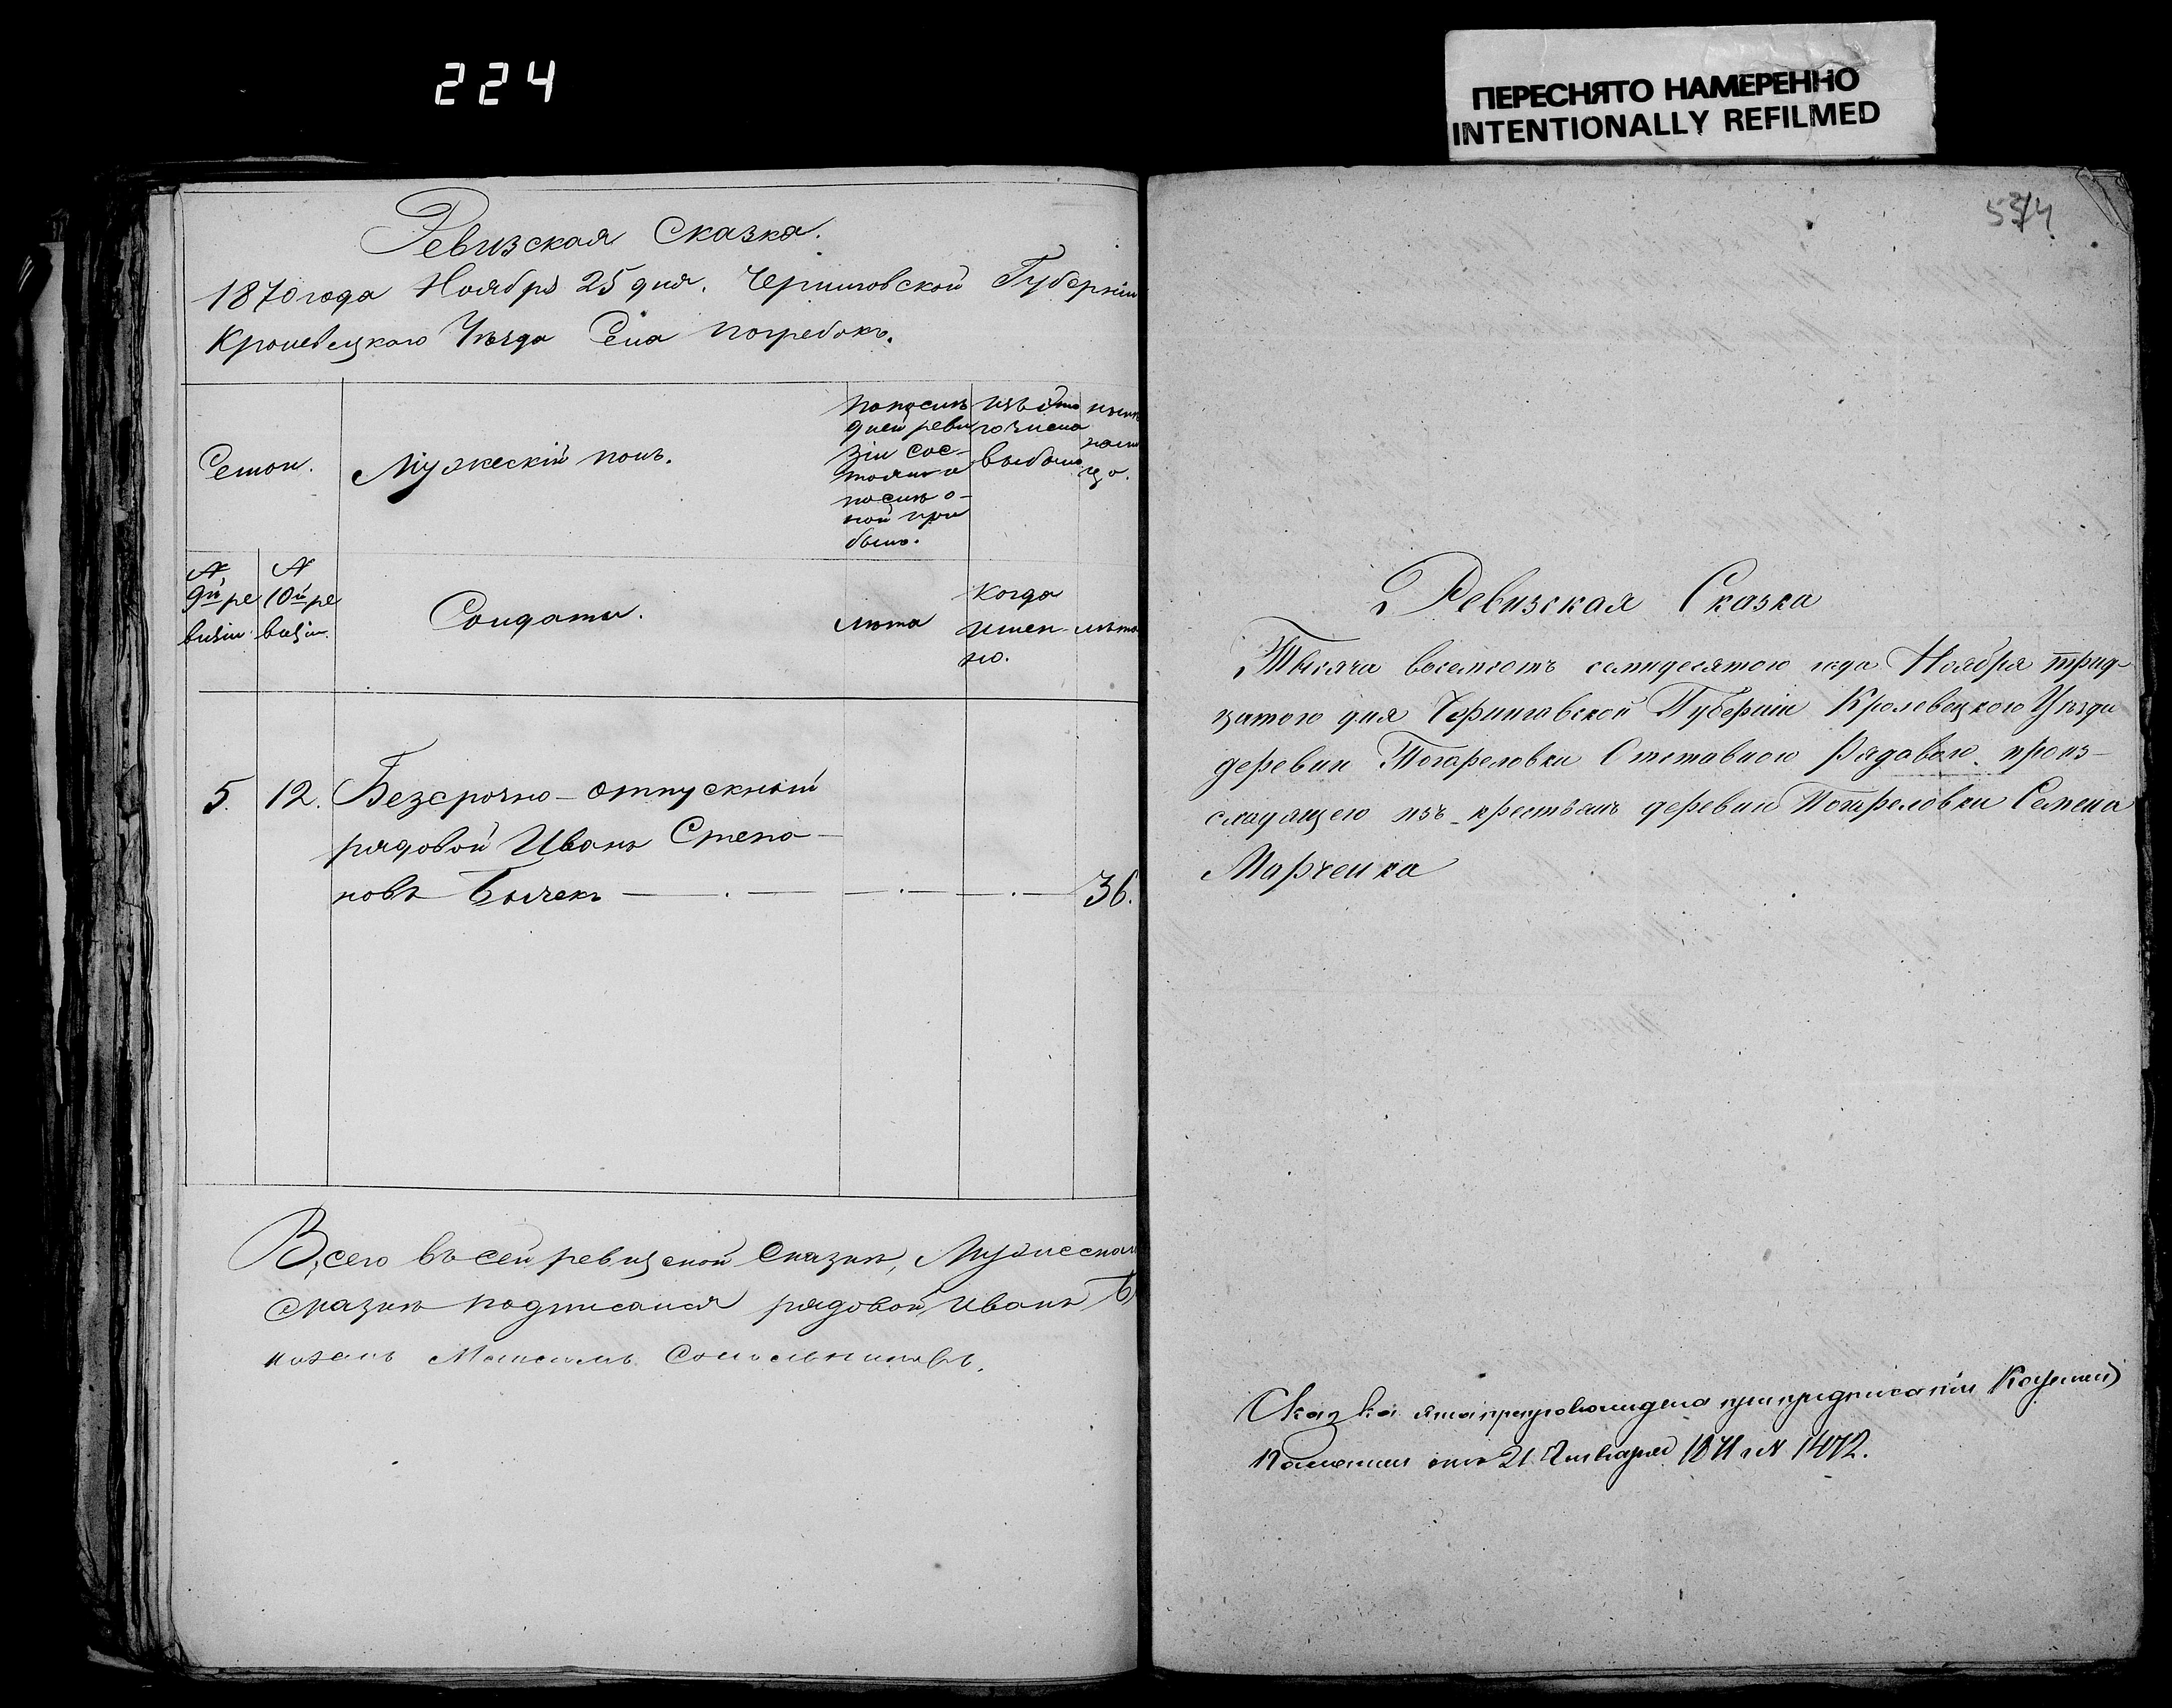 224
ПЕРЕСНЯТО НАМЕРЕННО
INTENTIONALLY REFILMED
Ревизская Сказка.
1870 года Ноября 25 дня. Черниговской Губерніи
Кролевецкаго Уѣзда Села Погребокъ.
Семьи.
Мужескій полъ.
По послѣ
дней реви
зіи сос-
тояло и
послѣ о-
ной при
было.
Изъ Это
го числа
выбыло
нынѣ
на ли
цо.
№
9й ре
визіи.
№
10й ре
визіи.
Солдаты.
лѣта
Когда
имен
но.
лѣта
5. 12. Безсрочно-отпускный
рядовой Иванъ Степа-
новъ Бычекъ 36.
Всего въ сей ревизской Сказкѣ, Мужеска
сказкѣ подписался рядовой Иванъ Б
Максимъ
53/4
Ревизская Сказка
Тысяча восемсотъ семидесятого года Ноября трид-
цатого дня Черниговской Губерніи Кролевецкого Уѣзда
деревни Погореловки Отставного Рядового произ-
сходящего изъ крестьянъ деревни Погореловки Семена
Марченка
Сказка эта препровождена при предписаніи Казенной
Палаты отъ 21 Января 1871 г № 1472.